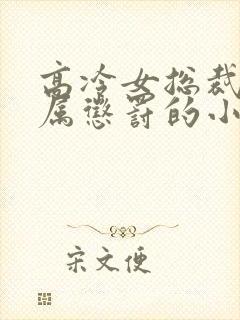 高冷女总裁
属惩罚的小
宋文便